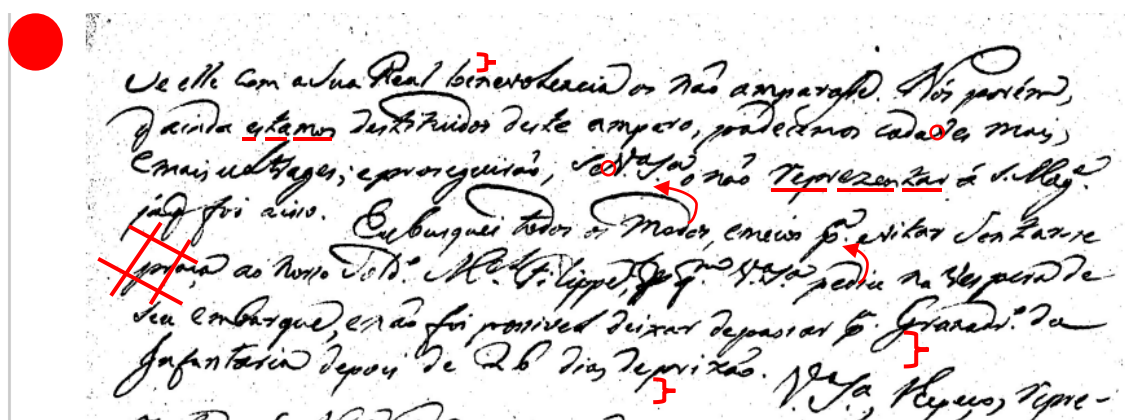 Se elle com a Sua Real benevolencia os não amparasse. Nós porém,
q̃ ainda estamos destituidos deste amparo, padecemos cada vez mais,
e mais ultrages; e proseguirão, se V.ª S.ª o não reprezentar á S. Mag.ᵉ
já q̃ foi aviso. Eu busquei todos os modos, e meios p.ª evitar sentarse
praça ao nosso Sold.º M.ᵉˡ Filippe, p.ʳ q.ᵐ V.ª S.ª pediu na vespera de
seu embarque, e não foi possivel deixar de passar p.ª Granad.º da
Infantaria depois de 26 dias de prizão.
V.ª S.ª, repre-